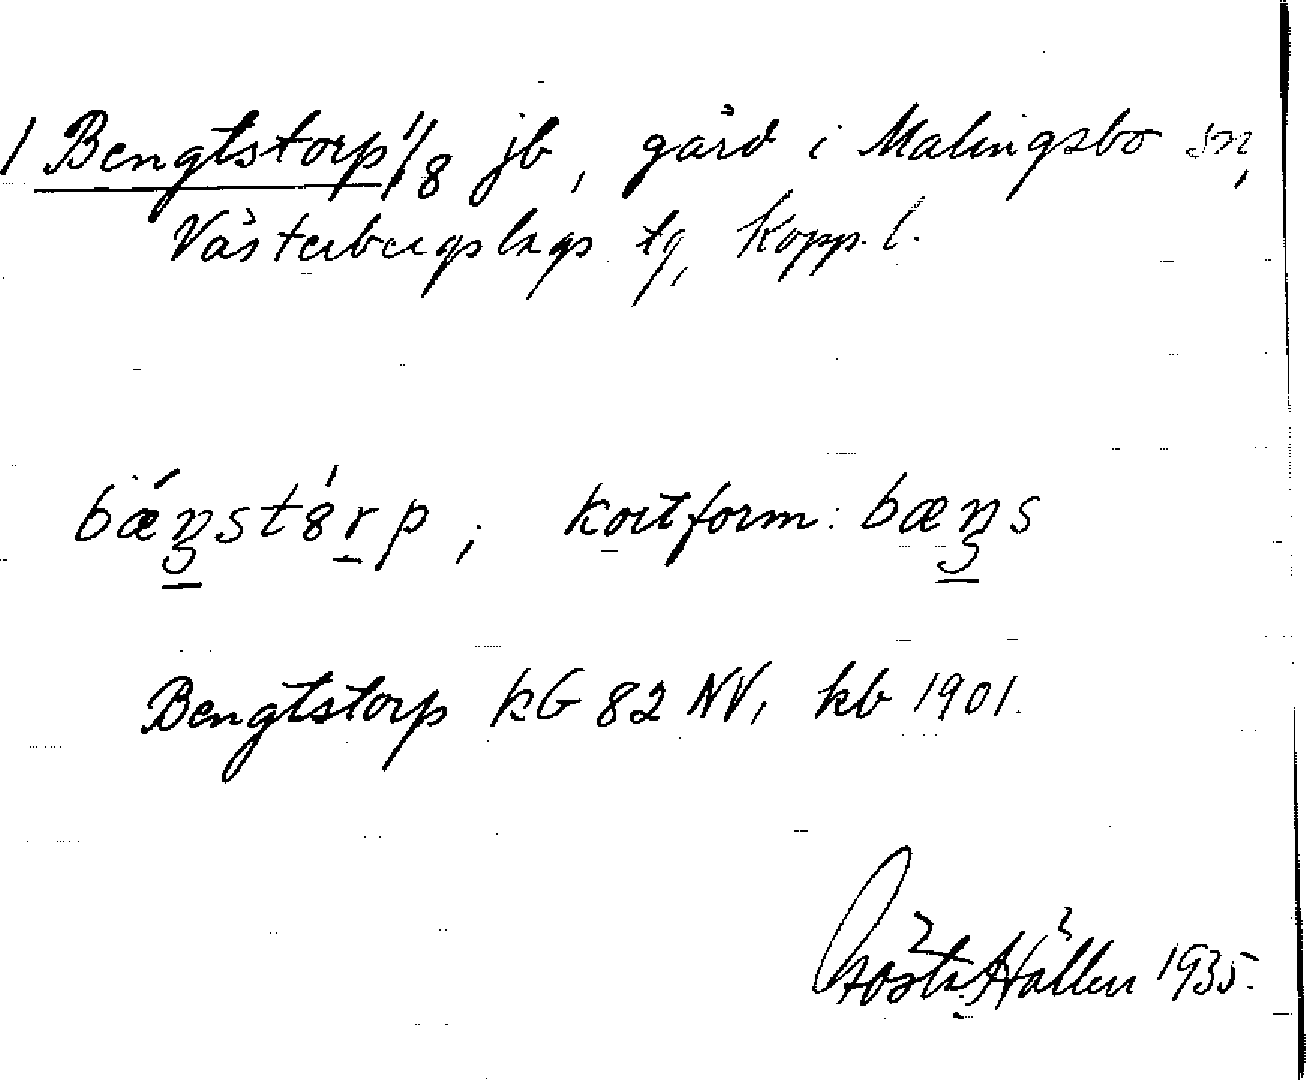 1 Bengtstorp 1/8 jb, gård i Malingsbo sn,
Västerbergslags tg, Kopp. l.
bǽŋstó̱rp; kortform: bæŋs
Bengtstorp kG 82 NV, kb 1901.
Gösta Hållen 1935.